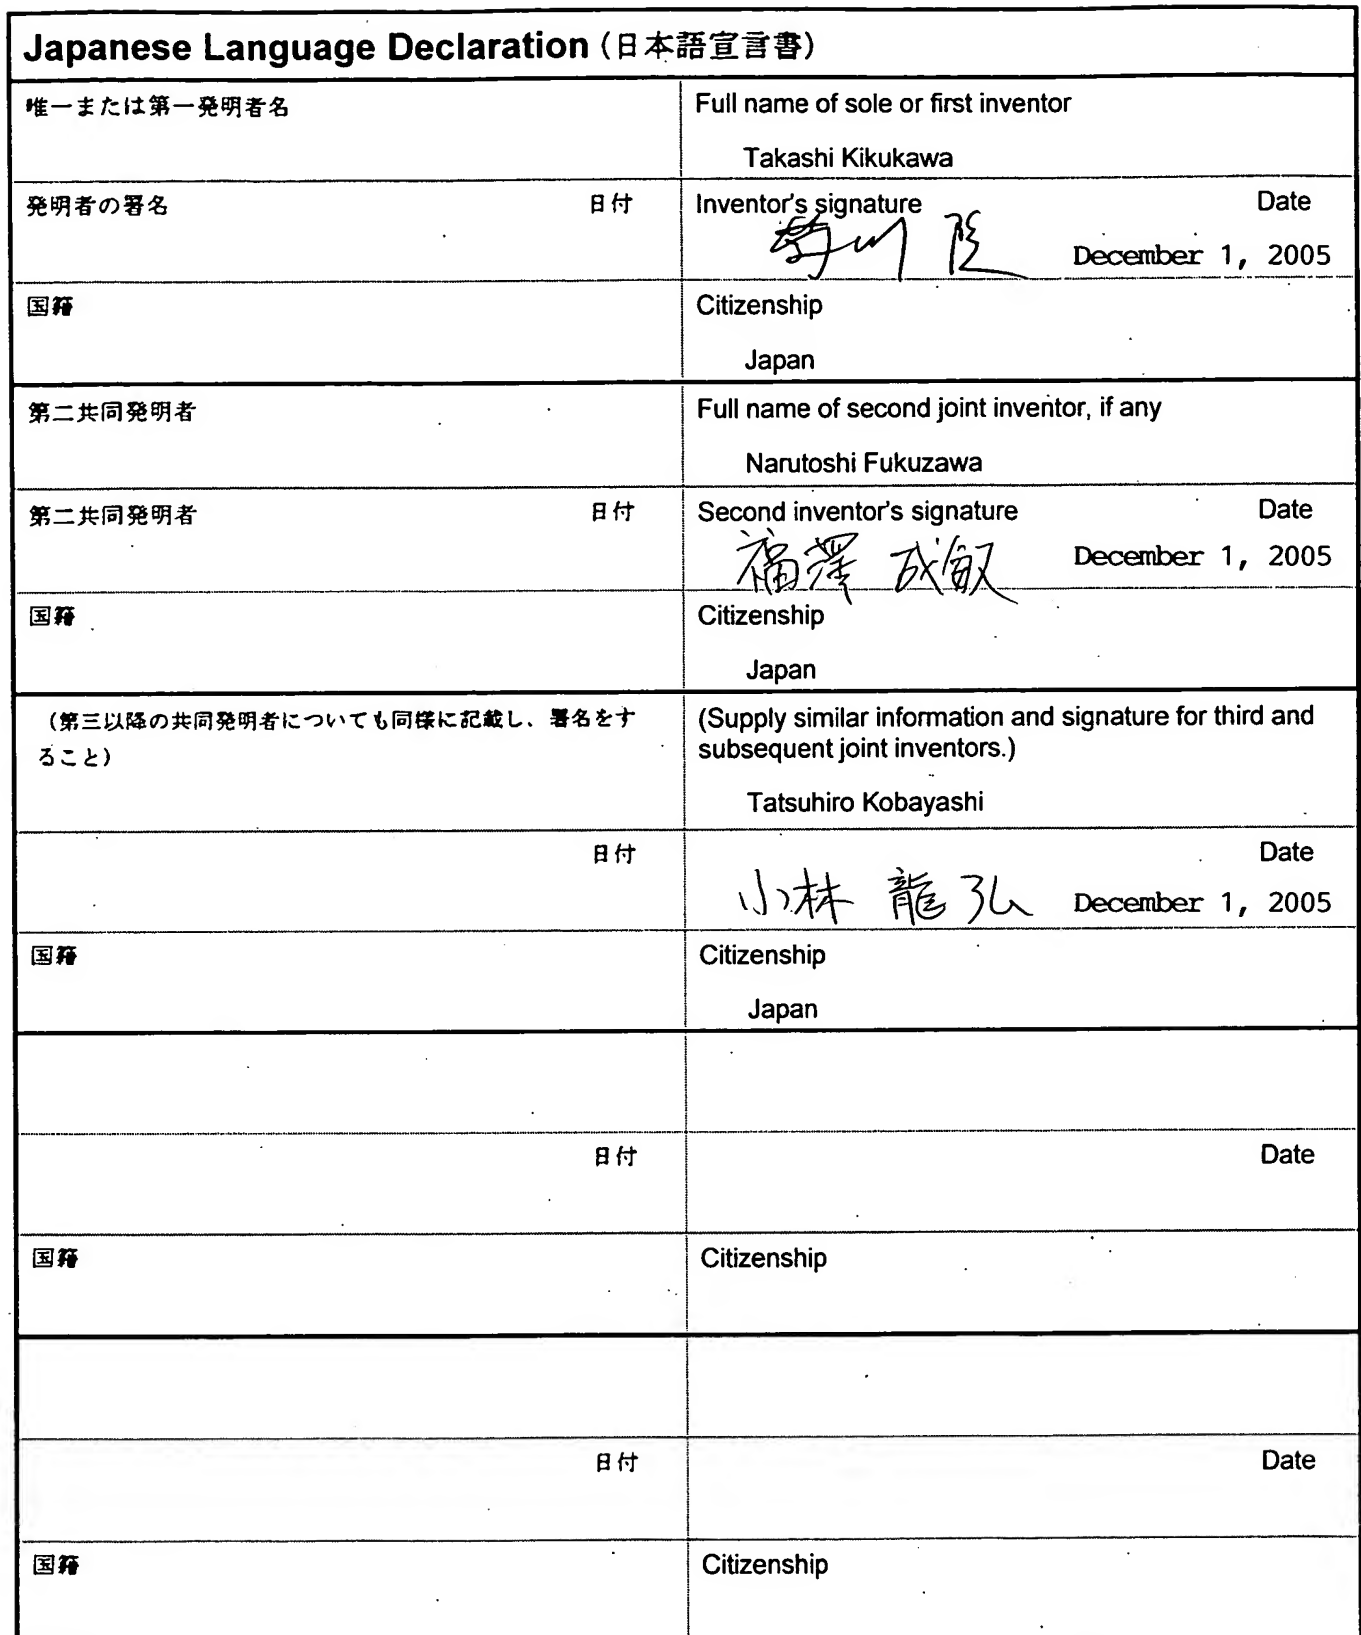 Japanese Language Declaration (日本語宣言書)
唯一または第一発明者名
Full name of sole or first inventor
Takashi Kikukawa
発明者の署名 日付
Inventor's signature Date
川 隆
December 1, 2005
国籍
Citizenship
Japan
第二共同発明者
Full name of second joint inventor, if any
Narutoshi Fukuzawa
第二共同発明者 日付
Second inventor's signature Date
福澤 成敏
December 1, 2005
国籍
Citizenship
Japan
(第三以降の共同発明者についても同様に記載し、署名をす
ること)
(Supply similar information and signature for third and
subsequent joint inventors.)
Tatsuhiro Kobayashi
日付
Date
小林 龍弘
December 1, 2005
国籍
Citizenship
Japan
日付
Date
国籍
Citizenship
日付
Date
国籍
Citizenship